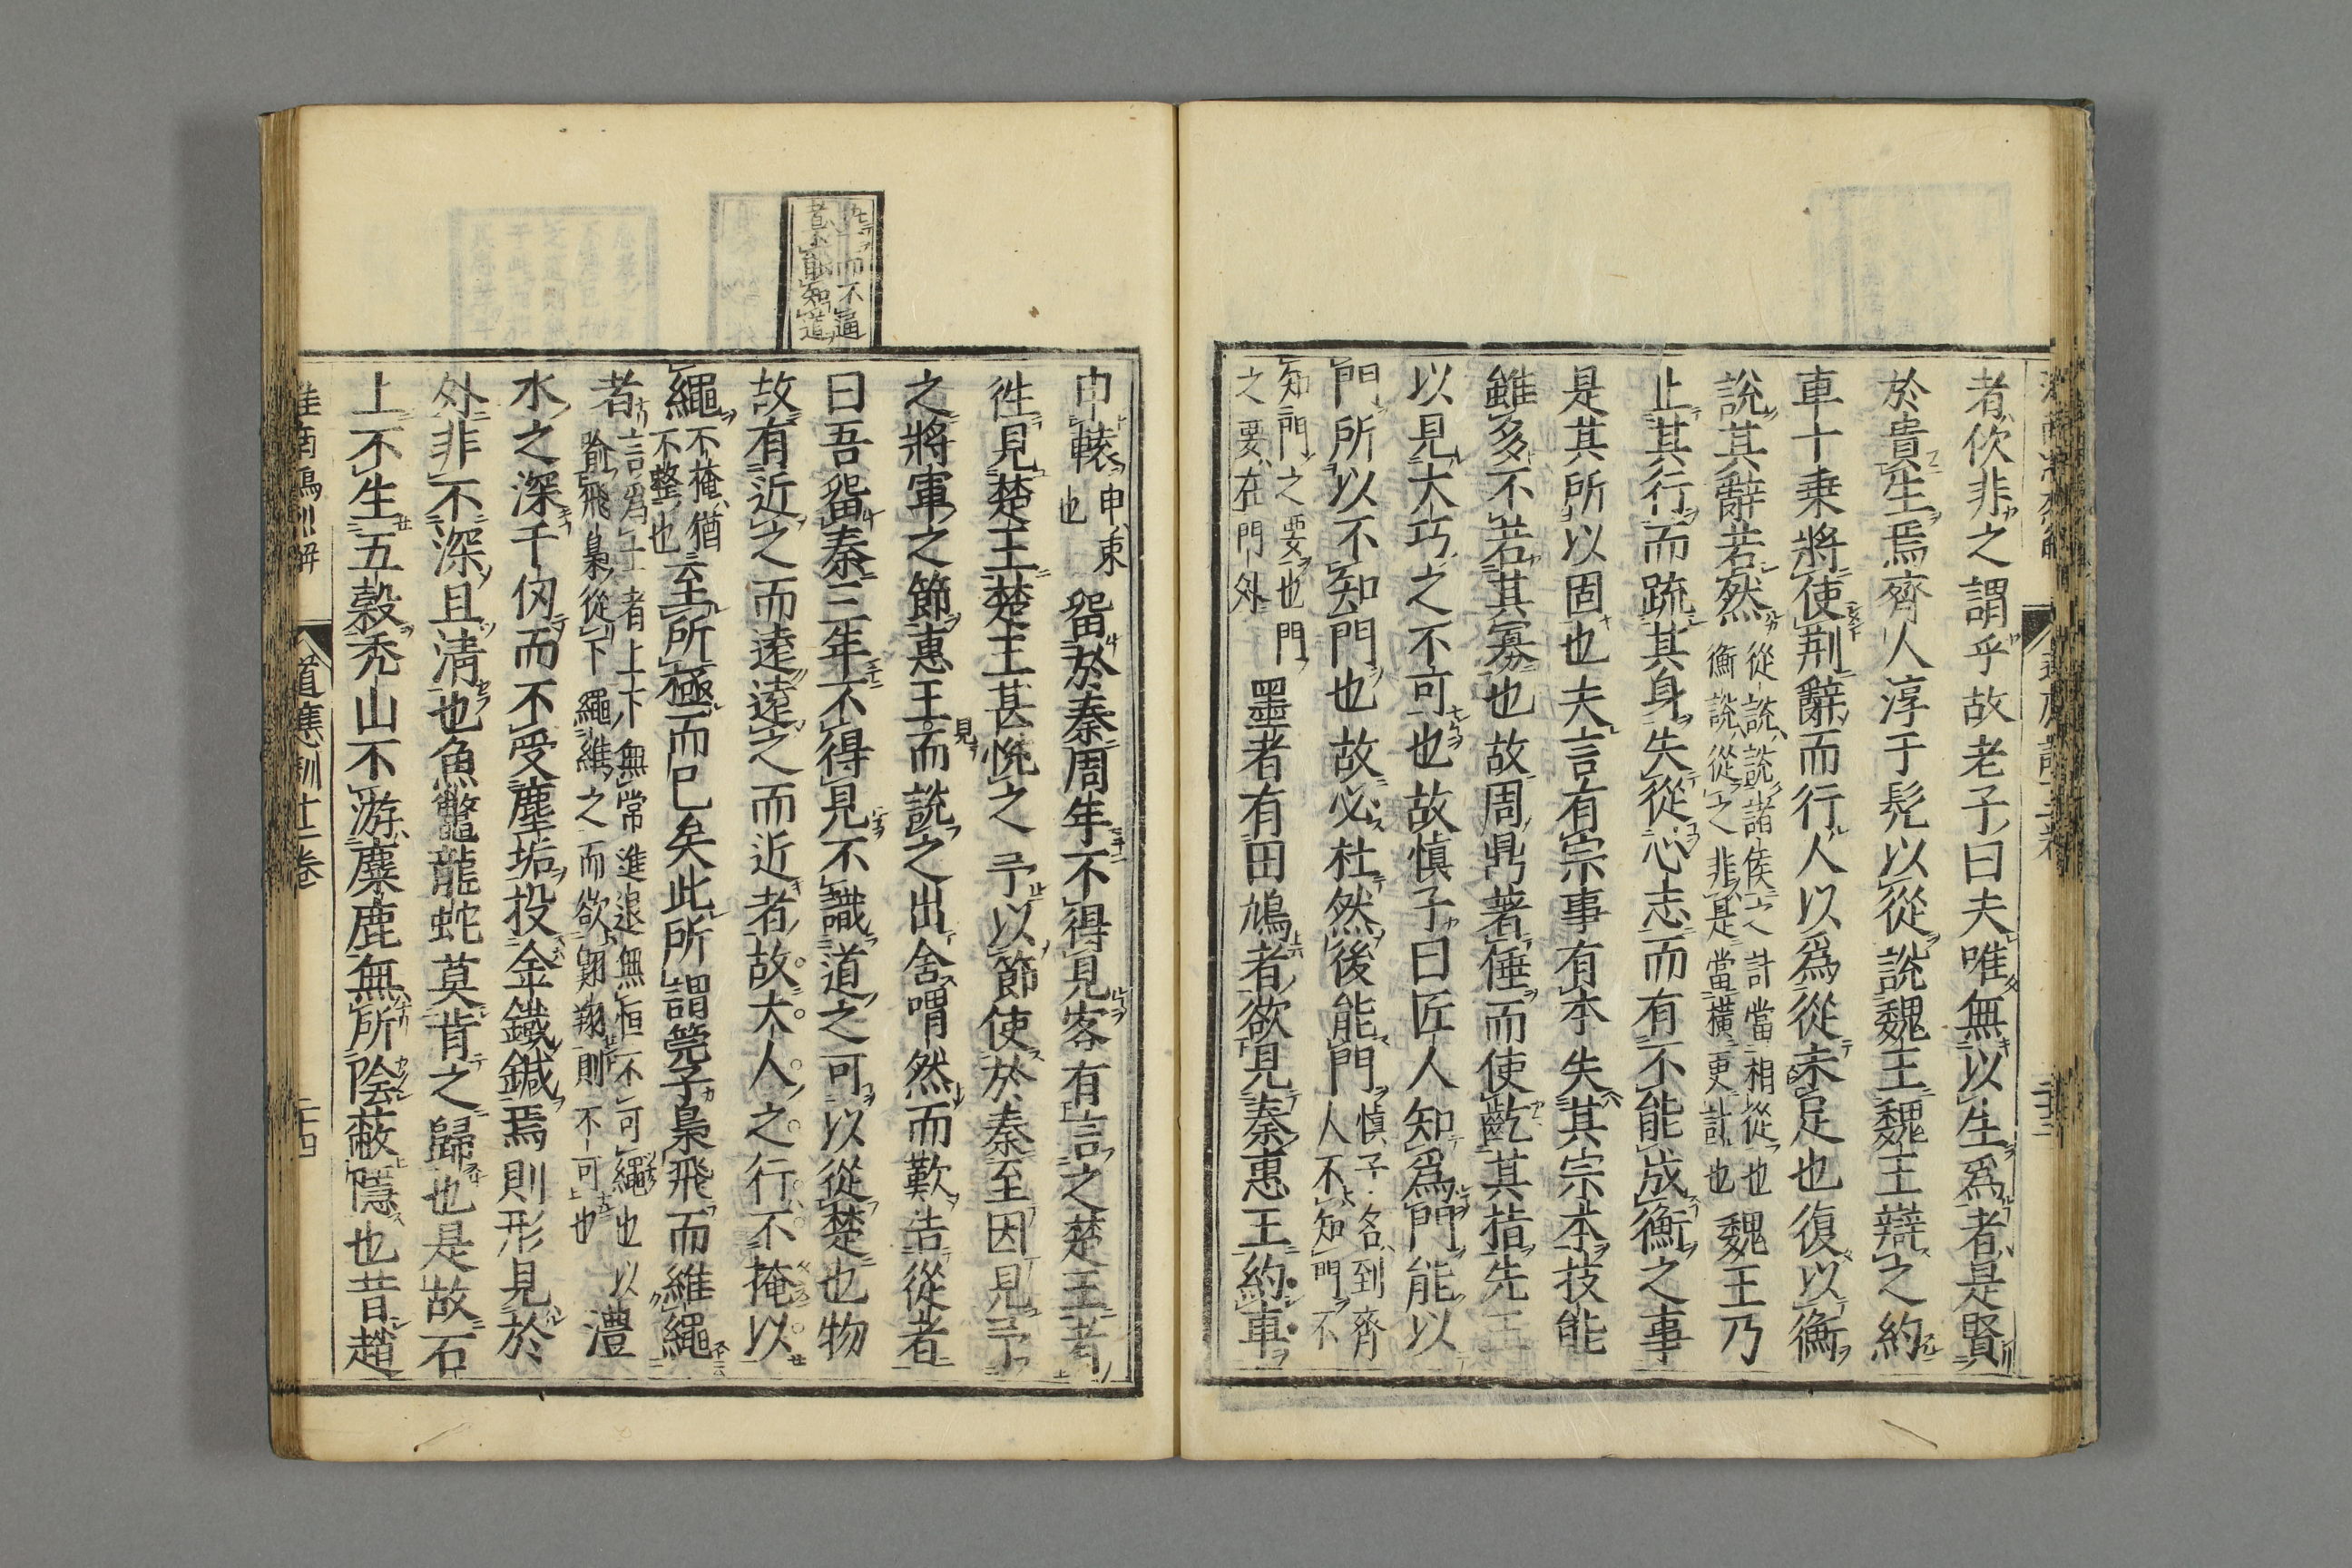 者佽非之謂乎故老子曰夫唯無以生爲者是賢
於貴生焉齊人淳于髠以從說魏王魏王辯之約
車十乗將使荆辭而行人以爲從未足也復以衡
說其辭若然從說說諸侯之計當相從也
衡說從之非是當橫更計也魏王乃
止其行而疏其身失從心志而有不能成衡之事
是其所以固也夫言有宗事有本失其宗本技能
雖多不若其寡也故周鼎著倕而使齕其指先王
以見大巧之不可也故慎子曰匠人知爲門能以
門所以不知門也故必杜然後能門慎子名到齊
人不知門不
知門之要也門
之要在門外墨者有田鳩者欲見秦惠王約車
申轅申束
也畱於秦周年不得見客有言之楚王者
徃見楚王楚王甚恱之予以節使於秦至因見予
之將軍之節惠王見而說之出舍喟然而歎告從者
曰吾畱秦三年不得見不識道之可以從楚也物
故有近之而遠遠之而近者故大人之行不掩以
繩不掩猶
不整也至所極而已矣此所謂筦子梟飛而維繩
者言爲士者上下無常進退無恒不可繩也以
喻飛梟從下繩維之而欲翺翔則不可也澧
水之深千仞而不受塵垢投金鐵鍼焉則形見於
外非不深且清也魚鼈龍蛇莫肯之歸也是故石
上不生五穀禿山不游麋鹿無所陰蔽隱也昔趙
道應訓十二卷
二十四